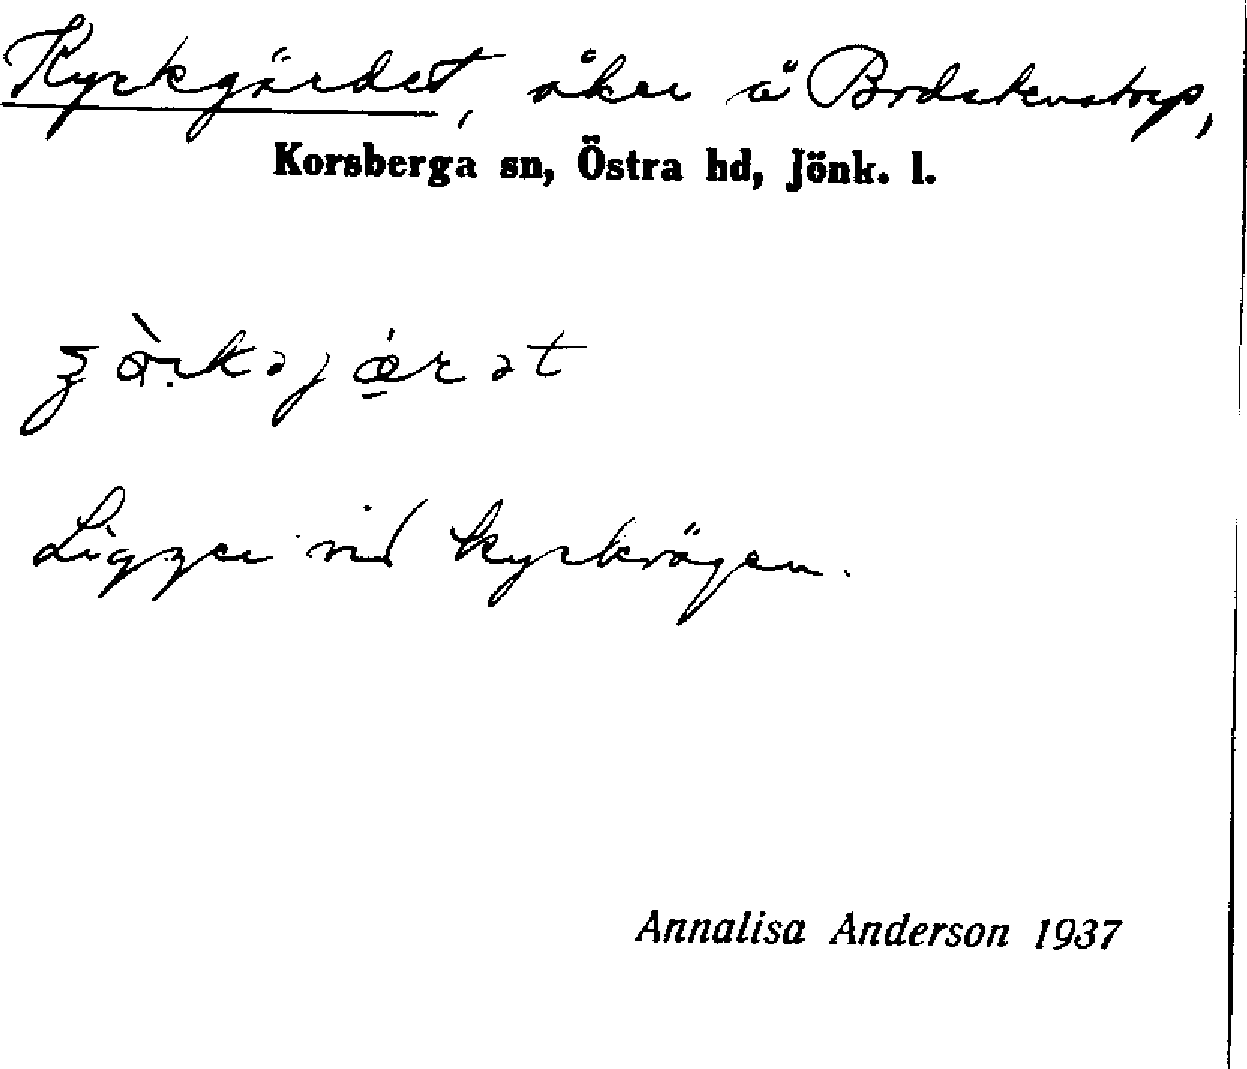 Kyrkgärdet, åker å Brdskenstorp,
Korsberga sn, Östra hd, Jönk. l.
Ligger vid kyrkvägen.
Annalisa Anderson 1937